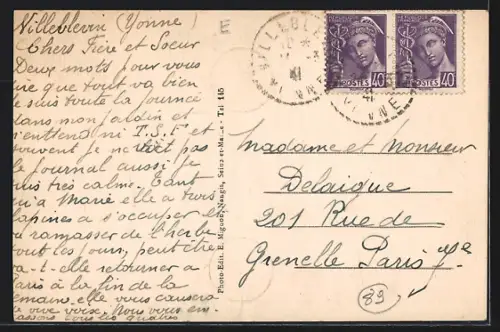 Villeblevin (Yonne)
Chers Frère et Soeur
Deux mots pour vous
que tout va bien
je suis toute la journée
dans mon jardin et
n'entend ni T.S.F et
souvent je ne vois pas
le journal aussi je
suis très calme. Tant
qu'a Marie elle a trois
lapines a s'occuper et
a ramasser de l'herbe
tout les jours, peut être
va-t-elle retourner a
Paris à la fin de la
semaine elle vous causera
de vive voix. Nous vous em-
brassons tous les quatre
E
VILLEBLE
41
YONNE
POSTES 40
POSTES 40
41
NNE
Photo-Edit. E. Mignon, Nangis, Seine-et-Marne - Tél. 145
Madame et Monsieur
Delaique
201 Rue de
Grenelle Paris 7e
89